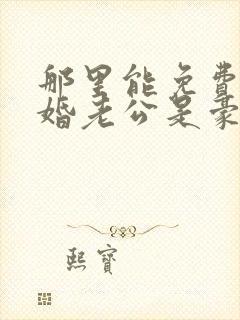 那里能免费
婚老公是豪
熙寶